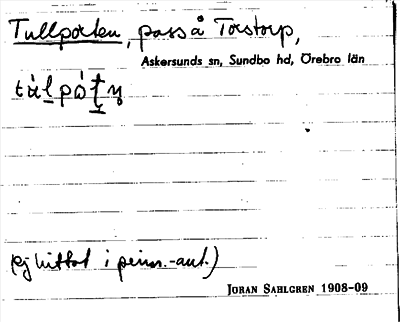 Tullporten, pass å Torstorp,
Askersunds sn, Sundbo hd, Örebro län
(Ej hittat i prim.-ant.)
JORAN SAHLGREN 1908-09